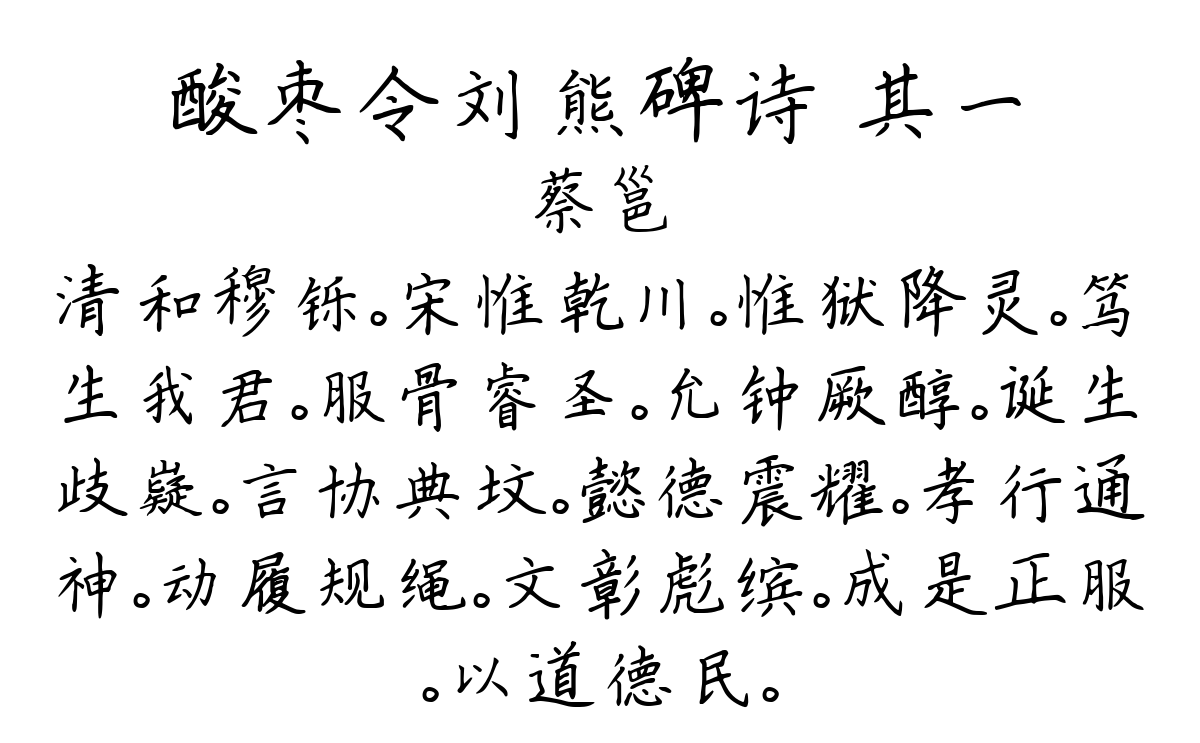 酸枣令刘熊碑诗 其一
蔡邕
清和穆铄。宋惟乾川。惟狱降灵。笃
生我君。服骨睿圣。允钟厥醇。诞生
歧嶷。言协典坟。懿德震耀。孝行通
神。动履规绳。文彰彪缤。成是正服
。以道德民。